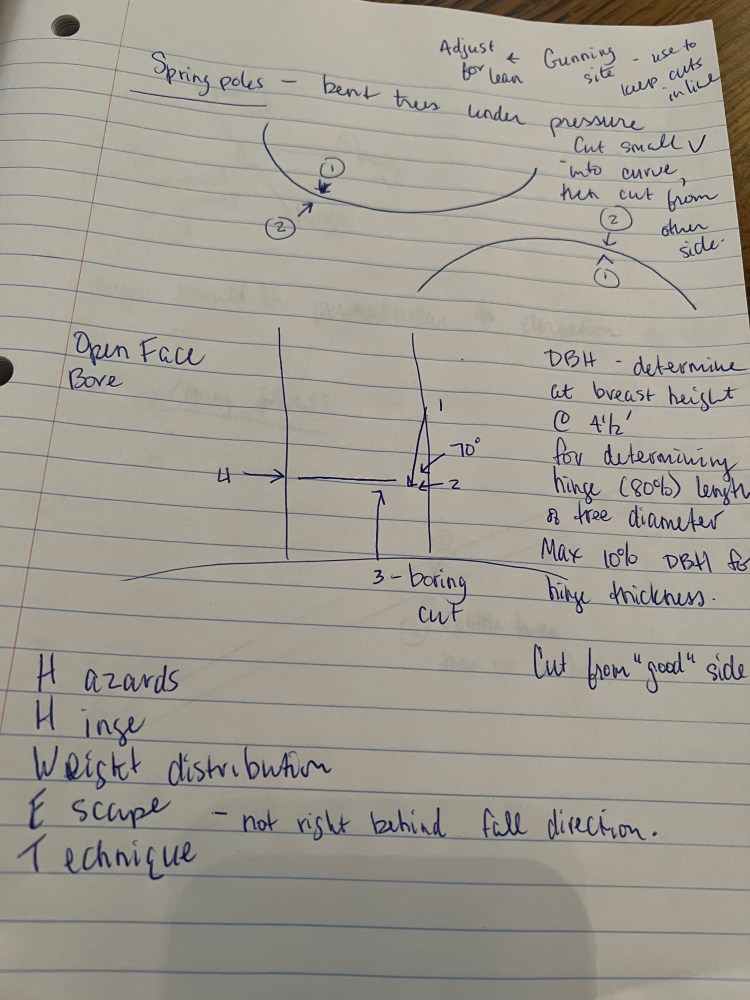 Adjust ← Gunning - use to
for lean site keep cuts
inline
Spring poles - bent trees under pressure
Cut small V
into curve,
then cut from
other
side.
①
②
②
①
Open Face
Bore
1
70°
2
4
3 - boring
cut
DBH - determine
at breast height
@ 4½'
for determining
hinge (80%) length
of tree diameter
Max 10% DBH for
hinge thickness.
Cut from "good" side
H azards
H inge
Weight distribution
E scape - not right behind fall direction.
T echnique